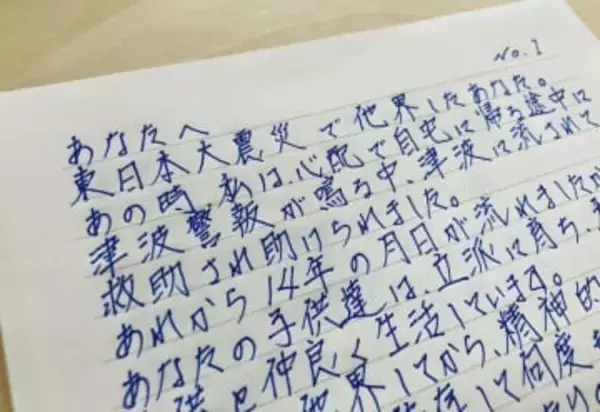 No.1
あなたへ
東日本大震災で他界したあなた。
あの時私は、心配で自宅に帰る途中に
津波警報が鳴る中、津波に流されて
救助され助けられました。
あれから14年の月日が流れましたが
あなたの子供達は、立派に育ち、
仲良く生活しています。
他界してから、精神的
して何度も